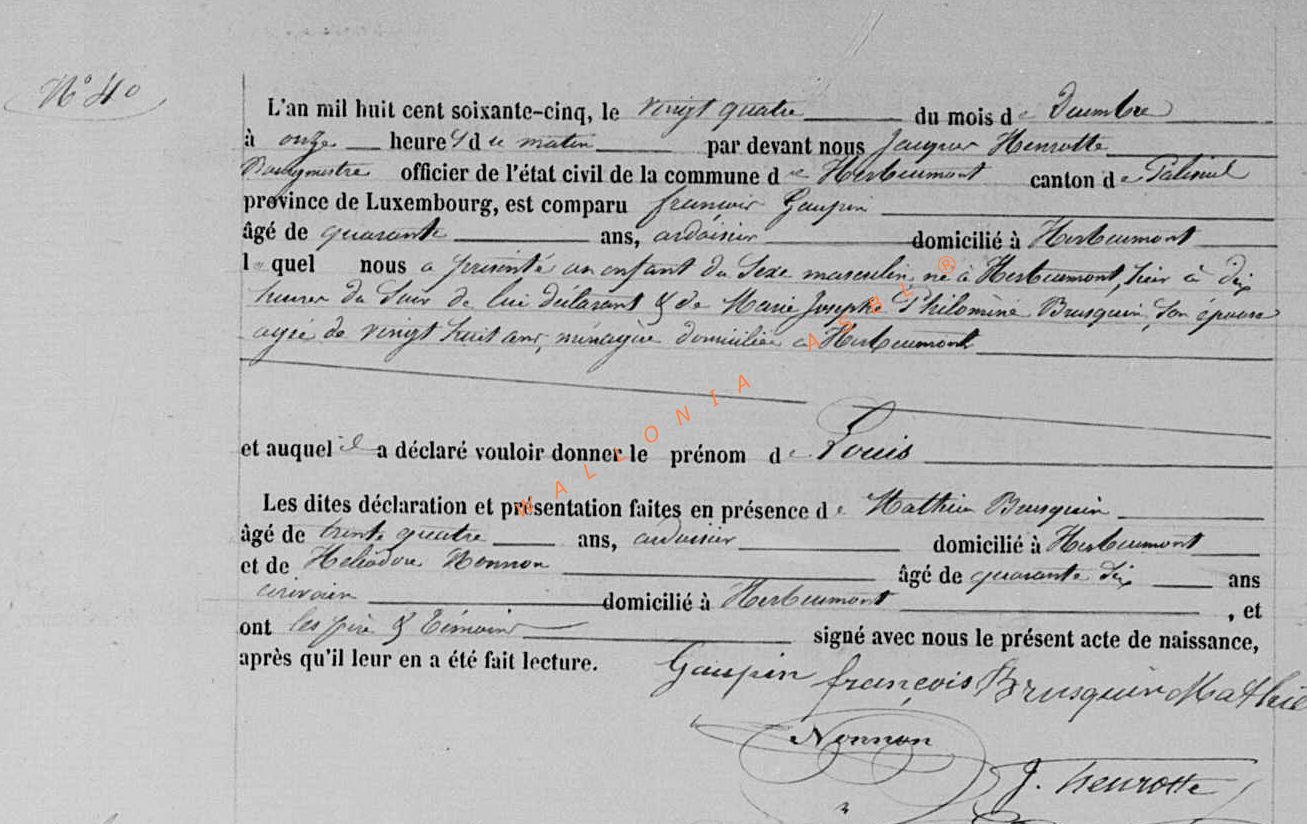 N° 40
L'an mil huit cent soixante-cinq, le vingt quatre du mois de Decembre
à onze heures du matin par devant nous Jacques Henrotte
Bourgmestre officier de l'état civil de la commune de Herbeumont canton de Paliseul
province de Luxembourg, est comparu françois Gaupin
âgé de quarante ans, ardoisier domicilié à Herbeumont
lequel nous a présenté un enfant du Sexe masculin, né à Herbeumont, hier à dix
heures du Soir de lui déclarant & de Marie Josephe Philomène Brusquin, Son épouse
agée de vingt huit ans, ménagère domiciliée à Herbeumont
et auquel il a déclaré vouloir donner le prénom de Louis
Les dites déclaration et présentation faites en présence de Mathieu Brusquin
âgé de trente quatre ans, ardoisier domicilié à Herbeumont
et de Héliodore Nonnon âgé de quarante dix ans
écrivain domicilié à Herbeumont , et
ont les père & témoins signé avec nous le présent acte de naissance,
après qu'il leur en a été fait lecture.
Gaupin françois Brusquin Mathie
Nonnon
J. henrotte
WALLONIA ASBL ®